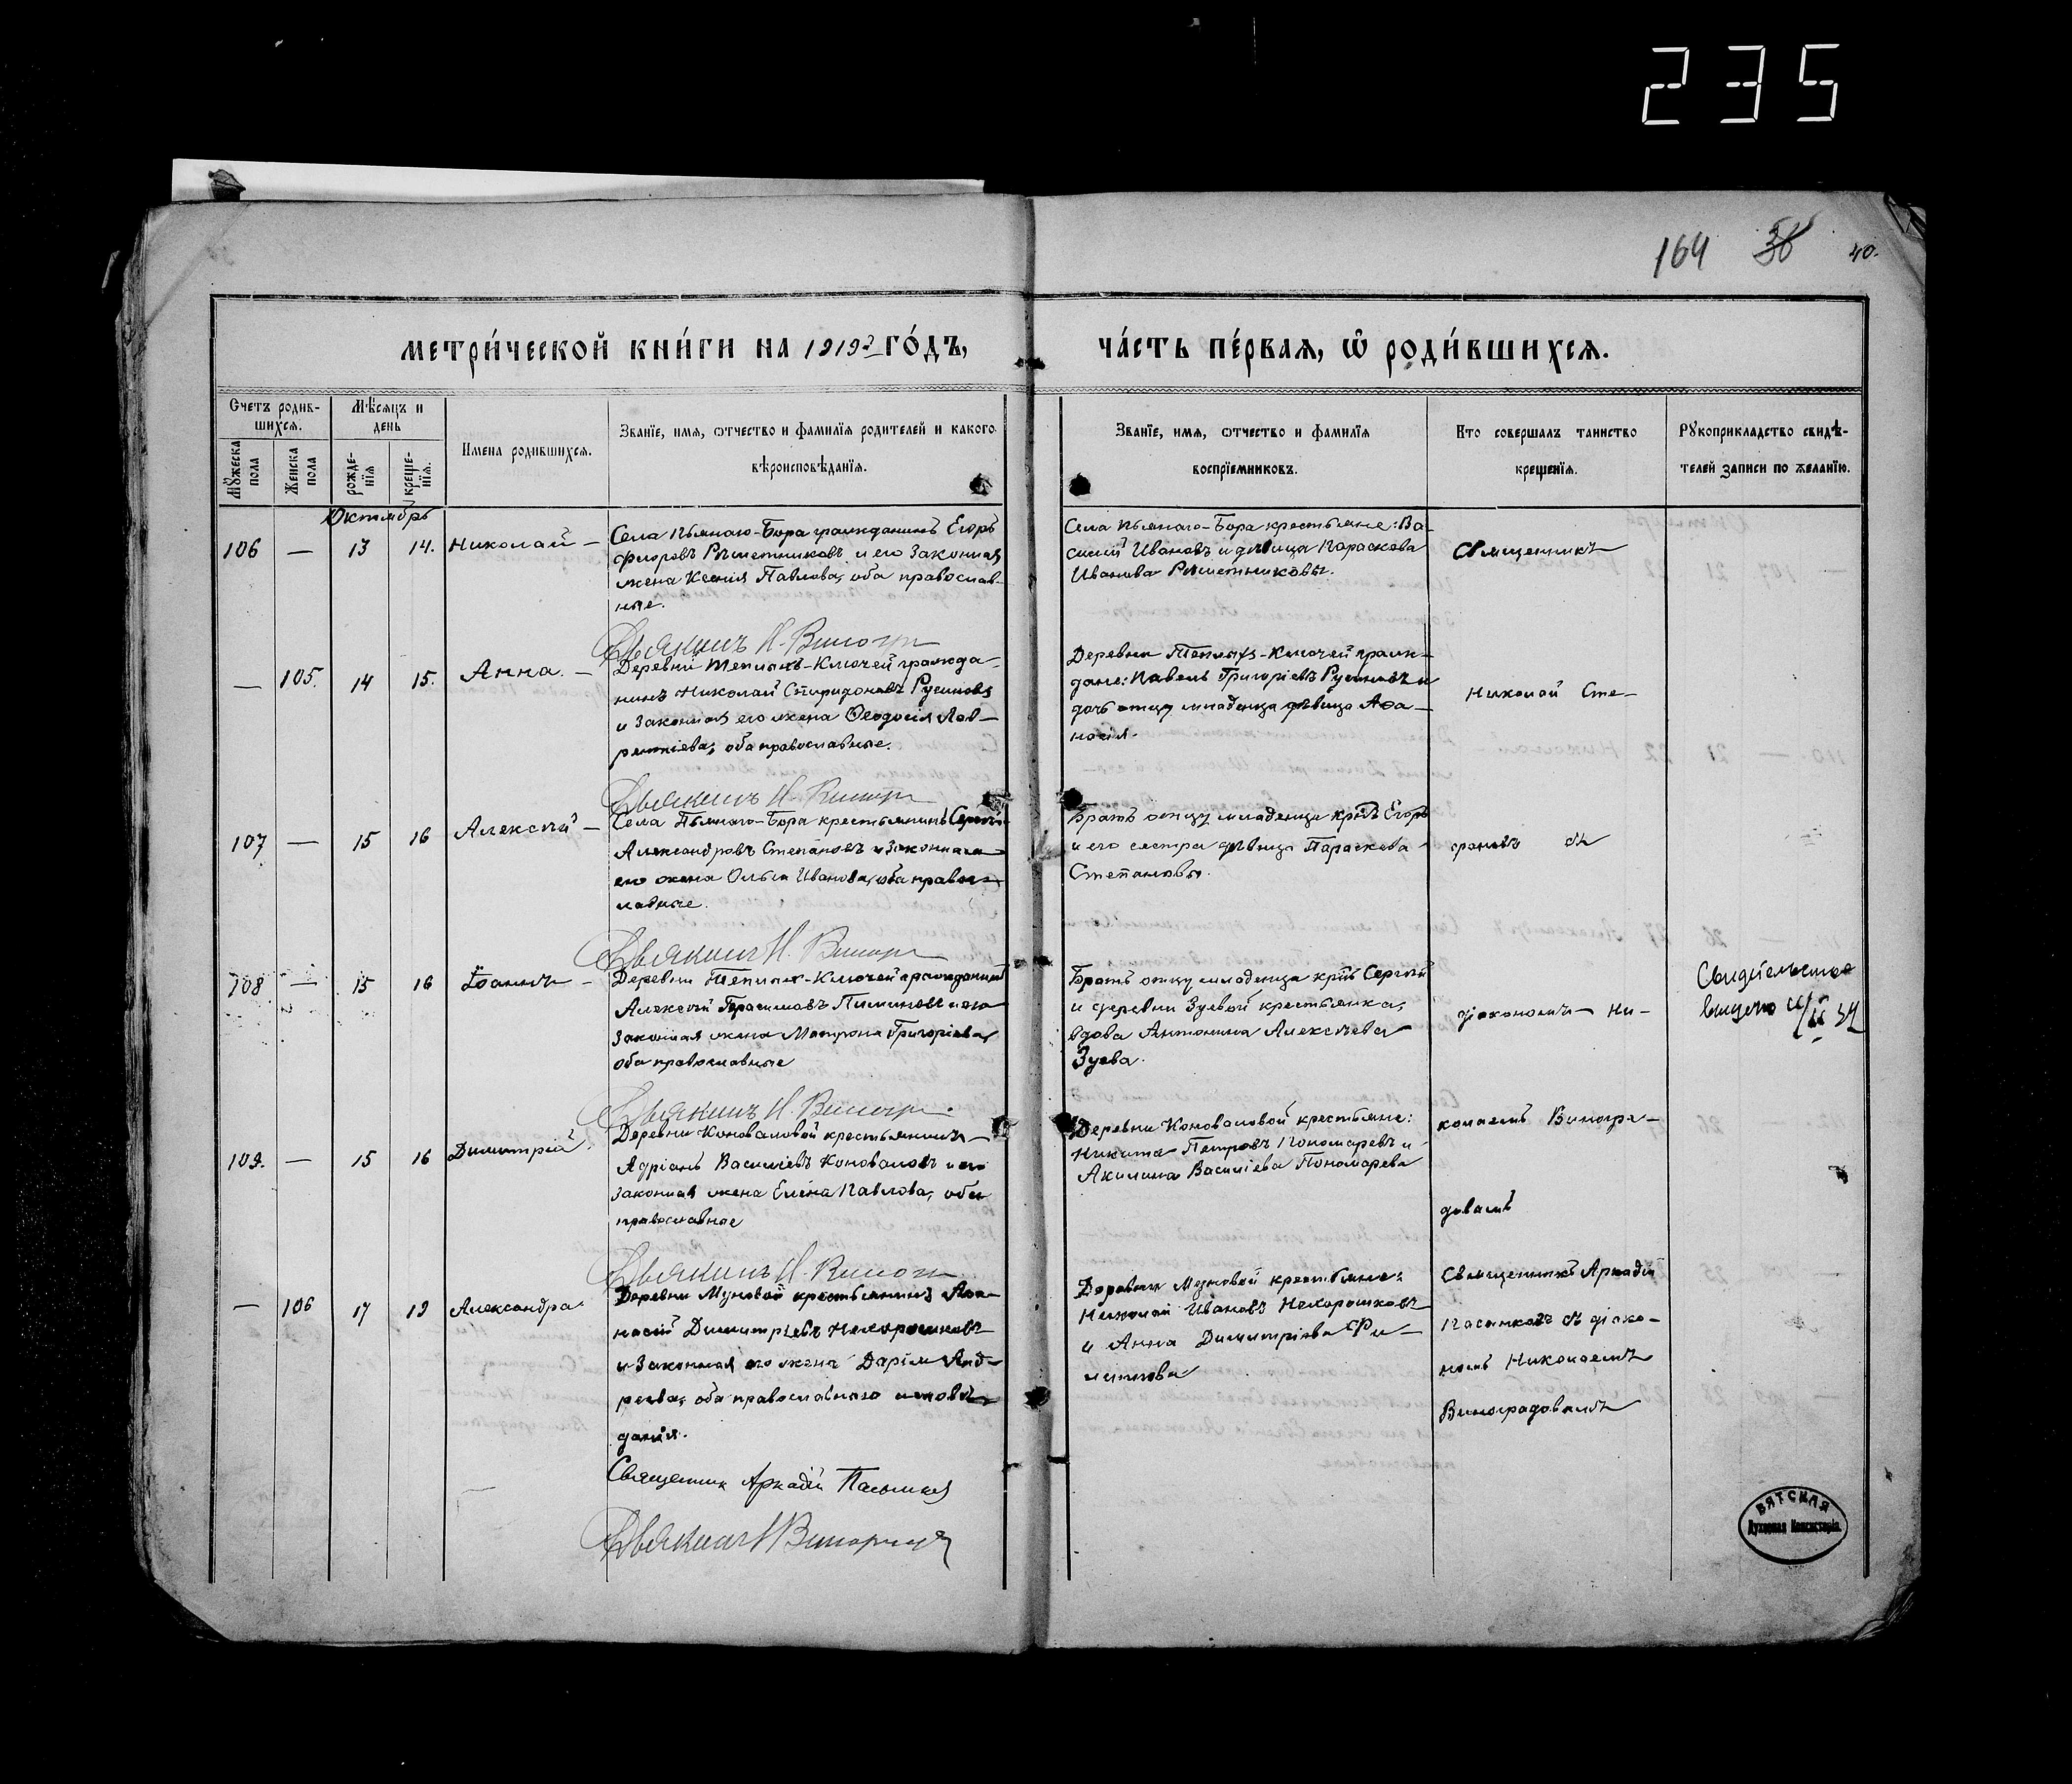 235
164 38 40.
МЕТРИ́ЧЕСКОЙ КНИ́ГИ НА 1919 ГО́ДЪ,
ЧА́СТЬ ПЕ́РВАЯ, Ѡ РОДИ́ВШИХСЯ.
Счетъ родив-
шихся.
Мѣсяцъ и
день
Мужеска
пола
Женска
пола
рожде-
нія
креще-
нія.
Имена родившихся.
Званіе, имя, ѿтчество и фамилія родителей и какого
вѣроисповѣданія.
Званіе, имя, ѿтчество и фамилія
воспріемниковъ.
Кто совершалъ таинство
крещенія.
Рукоприкладство свидѣ-
телей записи по желанію.
Октябрь
106 — 13 14. Николай —
Села Пьянаго-Бора гражданинъ Егоръ
Рѣшетниковъ и его законная
жена Ксенія Павлова, оба православ-
ные.
Села Пьянаго-Бора крестьяне: Ва-
силій Ивановъ и дѣвица Параскева
Иванова Рѣшетниковы.
Священникъ
Дьяконъ Н. Виногр
— 105. 14 15. Анна. —
Деревни Теплыхъ-Ключей гражда-
нинъ Николай Спиридоновъ Русиновъ
и законная его жена Ѳеодосія Лав-
рентіева, оба православные.
Деревни Теплыхъ-Ключей граж-
дане: Павелъ Григоріевъ Русиновъ и
дочь отцу младенца дѣвица Аѳа-
насія.
Николай Сте-
Дьяконъ Н. Виногр
107 — 15 16 Алексѣй —
Села Пьянаго-Бора крестьянинъ Сергѣй
Александровъ Степановъ и законная
его жена Ольга Иванова, оба правос-
лавные.
Братъ отцу младенца Егоръ
и его сестра дѣвица Параскева
Степановы.
фановъ съ
Дьяконъ Н. Виногр
108 — 15 16 Іоаннъ —
Деревни Теплыхъ-Ключей гражданинъ
Алексѣй Герасимовъ Пиминовъ и его
законная жена Матрона Григоріева,
оба православные
Братъ отцу младенца Сергѣй
и деревни Зуевой крестьянка,
вдова Антонина Алексѣева
Зуева.
діакономъ Ни-
Свидѣтельство
выдано
Дьяконъ Н. Виногр.
109. — 15 16 Димитрій.
Деревни Коноваловой крестьянинъ
Адріанъ Васильевъ Коноваловъ и его
законная жена Елена Павлова, оба
православные
Деревни Коноваловой крестьяне:
Никита Петровъ Пономаревъ и
Акилина Васильева Пономарева
колаемъ Виногра-
довымъ
Дьяконъ Н. Виногр
— 106 17 19 Александра
Деревни Муновой крестьянинъ Аѳа-
насій Димитріевъ Нехорошковъ
и законная его жена Дарія Анд-
реева, оба православнаго исповѣ-
данія.
Деревни Муновой крестьяне:
Николай Ивановъ Нехорошковъ
и Анна Димитріева Фи-
липпова
Священникъ Аркадій
Пасынковъ съ діако-
номъ Николаемъ
Виноградовымъ
Священник Аркадій Пасынков
Дьяконъ Н Виноградов
ВЯТСКАЯ
Духовная Консисторія.